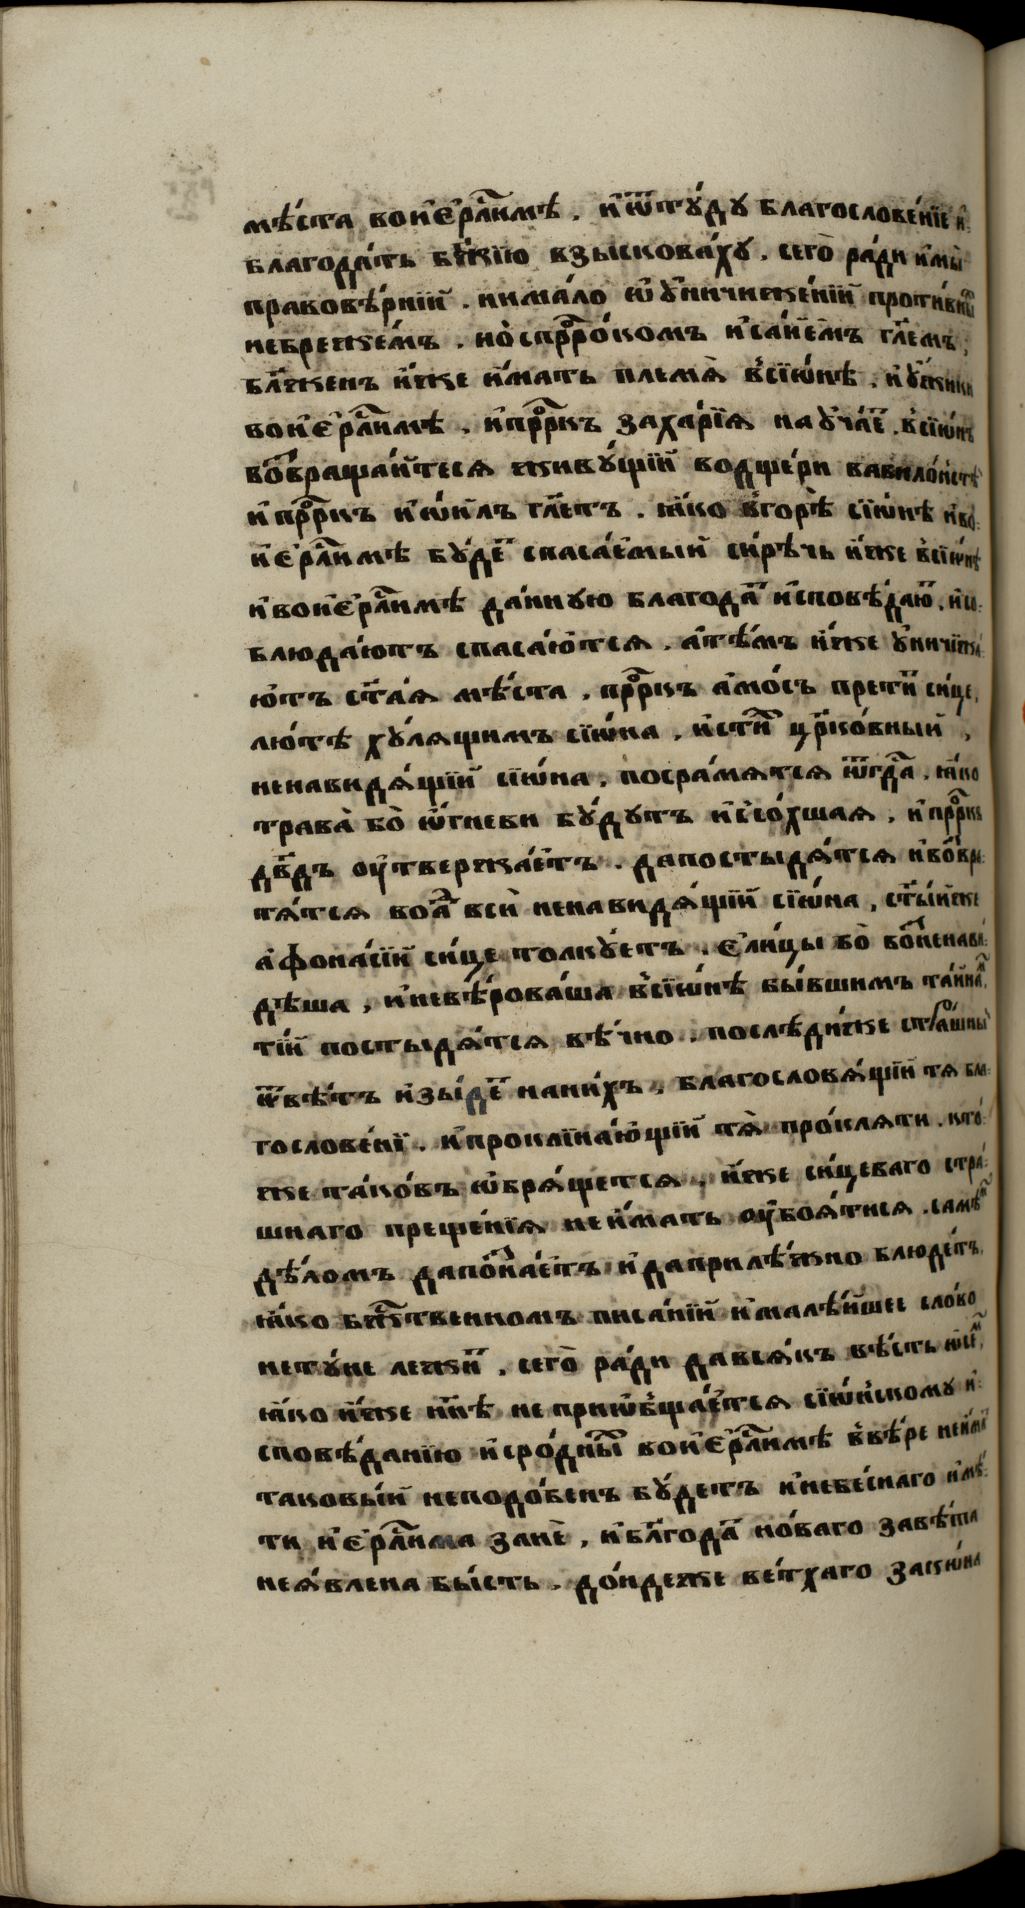 мѣ́ста воі҆є҆рⷭ҇ли́мѣ . и҆ѿту́дꙋ благослове́нїе и҆
благода́ть бж҃їю взыскова́хꙋ . сего̀ ра́ди и҆мы̀
правовѣ́рнїи . нима́ло ѡ҆ ᲂу҆ничиже́нїй проти́вныⷯ
небреже́мъ . но̀спрⷪ҇ро́комъ и҆са́їемъ гл҃емъ ,
бл҃же́нъ и҆́же и҆́мать пле́мѧ в̾сїѡ́нѣ . и҆ю҆́жики
воі҆є҆рⷭ҇ли́мѣ . и҆прⷪ҇ркъ заха́рїѧ наᲂу҆ча́еⷮ . в̾сїѡ́нъ
воⷥвраща́йтесѧ живꙋ́щїи водще́ри вавило́нстѣ
и҆ прⷪ҇ркъ і҆ѡи́ль гл҃етъ . ꙗ҆́ко в̾горѣ̀ сїѡ́нѣ и҆во
і҆є҆рⷭ҇ли́мѣ бꙋ́деⷮ спаса́емый си́рѣчь и҆́же в̾сїѡ́нѣ
и҆воі҆є҆рⷭ҇ли́мѣ да́ннꙋю благода́ⷮ и҆сповѣ́даюⷮ . и҆со
блюда́ютъ спаса́ютсѧ . а҆тѣ́мъ и҆́же ᲂу҆ничижа́
ютъ ст҃а́ѧ мѣ́ста . прⷪ҇ркъ а҆мо́съ прети́ⷮ си́це ,
лю́тѣ хꙋ́лѧщимъ сїѡ́на . и҆сти́ⷯ цр҃ко́вный ,
ненави́дѧщїи сїѡ́на , посра́мѧтсѧ ѿгда̀ . ꙗ҆́ко
трава̀ бо̀ ѡ҆́гневи бꙋ́дꙋтъ и҆ссо́хшаѧ . и҆ прⷪ҇ркъ
дв҃дъ ᲂу҆твержа́етъ . дапостыдѧ́тсѧ и҆воⷥвра
тѧ́тсѧ воⷥпѧⷮ всѝ ненави́дѧщїи сїѡ́на , ст҃ы́йже
а҆фона́сїй си́це толкꙋ́етъ . є҆ли́цы бо̀ воⷥненави
дѣша , и҆невѣ́роваша в̾сїѡ́нѣ бы́вшимъ та́йнаⷨ ,
ті́и постыдѧ́тсѧ вѣ́чно . послѣ́диже стра́шный
ѿвѣ́тъ и҆зы́деⷮ нани́хъ , благословѧ́щїи тѧ бла
гослове́нї . и҆проклина́ющїи тѧ̀ про́клѧти . кто́
же тако́въ ѡ҆брѧ́щетсѧ , и҆́же си́цеваго стра
шнаго преще́нїѧ неи҆́мать ᲂу҆боѧ́тисѧ . самѣⷨ
дѣ́ломъ дапоⷥна́етъ и҆даприлѣ́жно блюде́тъ
ꙗ҆́ко бжⷭ҇твенномъ писа́нїи и҆малѣ́йшее сло́во
нетꙋ́не лежи́ⷮ . сего̀ ра́ди давсѧ́къ вѣ́сть ѡ҆сеⷨ ,
ꙗ҆́ко и҆́же нн҃ѣ не приѡ҆бща́етсѧ сїѡ́нскомꙋ и҆
сповѣ́данїю и҆сро́дныⷯ воі҆є҆рⷭ҇ли́мѣ в̾вѣ́ре неи҆́маⷮ
таковы́й неподо́бенъ бꙋ́детъ и҆небе́снаго и҆мѣ
ти і҆є҆рⷭ҇ли́ма занѐ , и҆бл҃года́ⷮ но́ваго завѣ́та
неꙗ҆́влена бы́сть . до́ндеже ве́тхаго зако́на